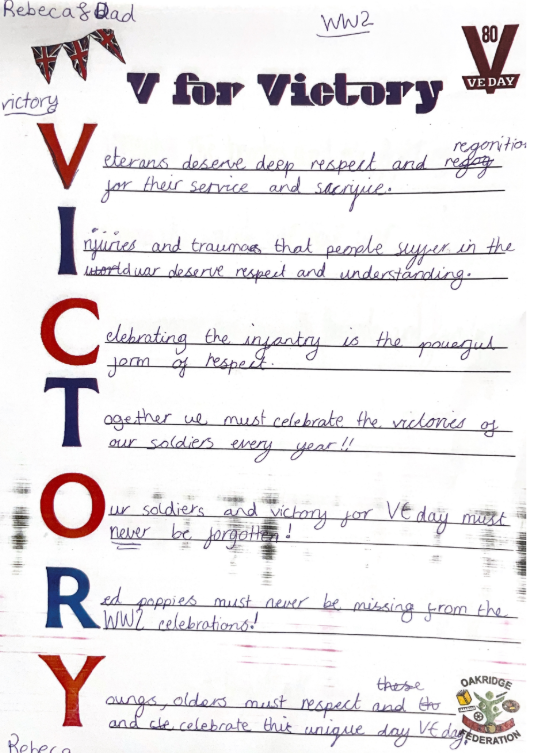 Rebeca & Dad
WW2
80
VE DAY
V for Victory
victory
regonition
Veterans deserve deep respect and
for their service and sacrifice.
Injuries and traumas that people suffer in the
world war deserve respect and understanding.
Celebrating the infantry is the powerful
form of respect.
Together we must celebrate the victories of
our soldiers every year!!
Our soldiers and victory for VE day must
never be forgotten!
Red poppies must never be missing from the
WW2 celebrations!
these
Youngs, olders must respect and
and celebrate this unique day VE day
OAKRIDGE
FEDERATION
Rebeca